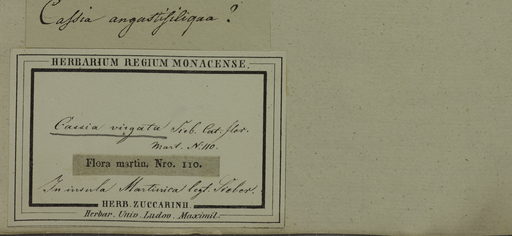 Cassia angustisiliqua?
HERBARIUM REGIUM MONACENSE.
Cassia virgata Sieb. Cat. flor.
Mart. N. 110.
Flora martin. Nro. 110.
In insula Martinica legt. Sieber.
HERB. ZUCCARINII.
Herbar. Univ. Ludov. Maximil.